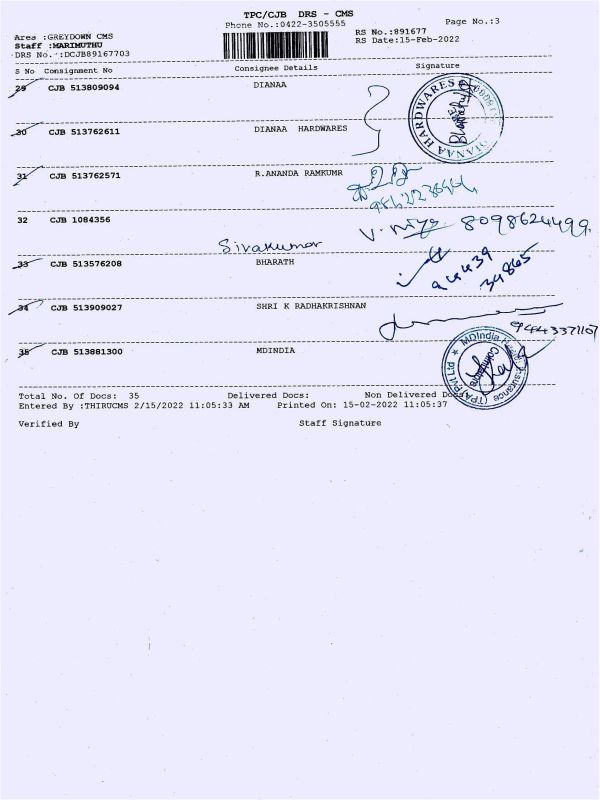 TPC/CJB DRS - CMS
Page No.:3
Phone No.:0422-3505555
RS No.:891677
RS Date:15-Feb-2022
Area :GREYDOWN CMS
Staff :MARIMUTHU
DRS No. :DCJB89167703
S No Consignment No Consignee Details Signature
29 CJB 513809094 DIANAA
30 CJB 513762611 DIANAA HARDWARES
DIANAA HARDWARES
31 CJB 513762571 R.ANANDA RAMKUMR
32 CJB 1084356 V. niya 8098624499
Sivakumar
33 CJB 513576208 BHARATH
34865
34 CJB 513909027 SHRI K RADHAKRISHNAN
35 CJB 513881300 MDINDIA
MDIndia Health Insurance (TPA) Pvt Ltd
Total No. Of Docs: 35 Delivered Docs: Non Delivered Docs:
Entered By :THIRUCMS 2/15/2022 11:05:33 AM Printed On: 15-02-2022 11:05:37
Verified By Staff Signature